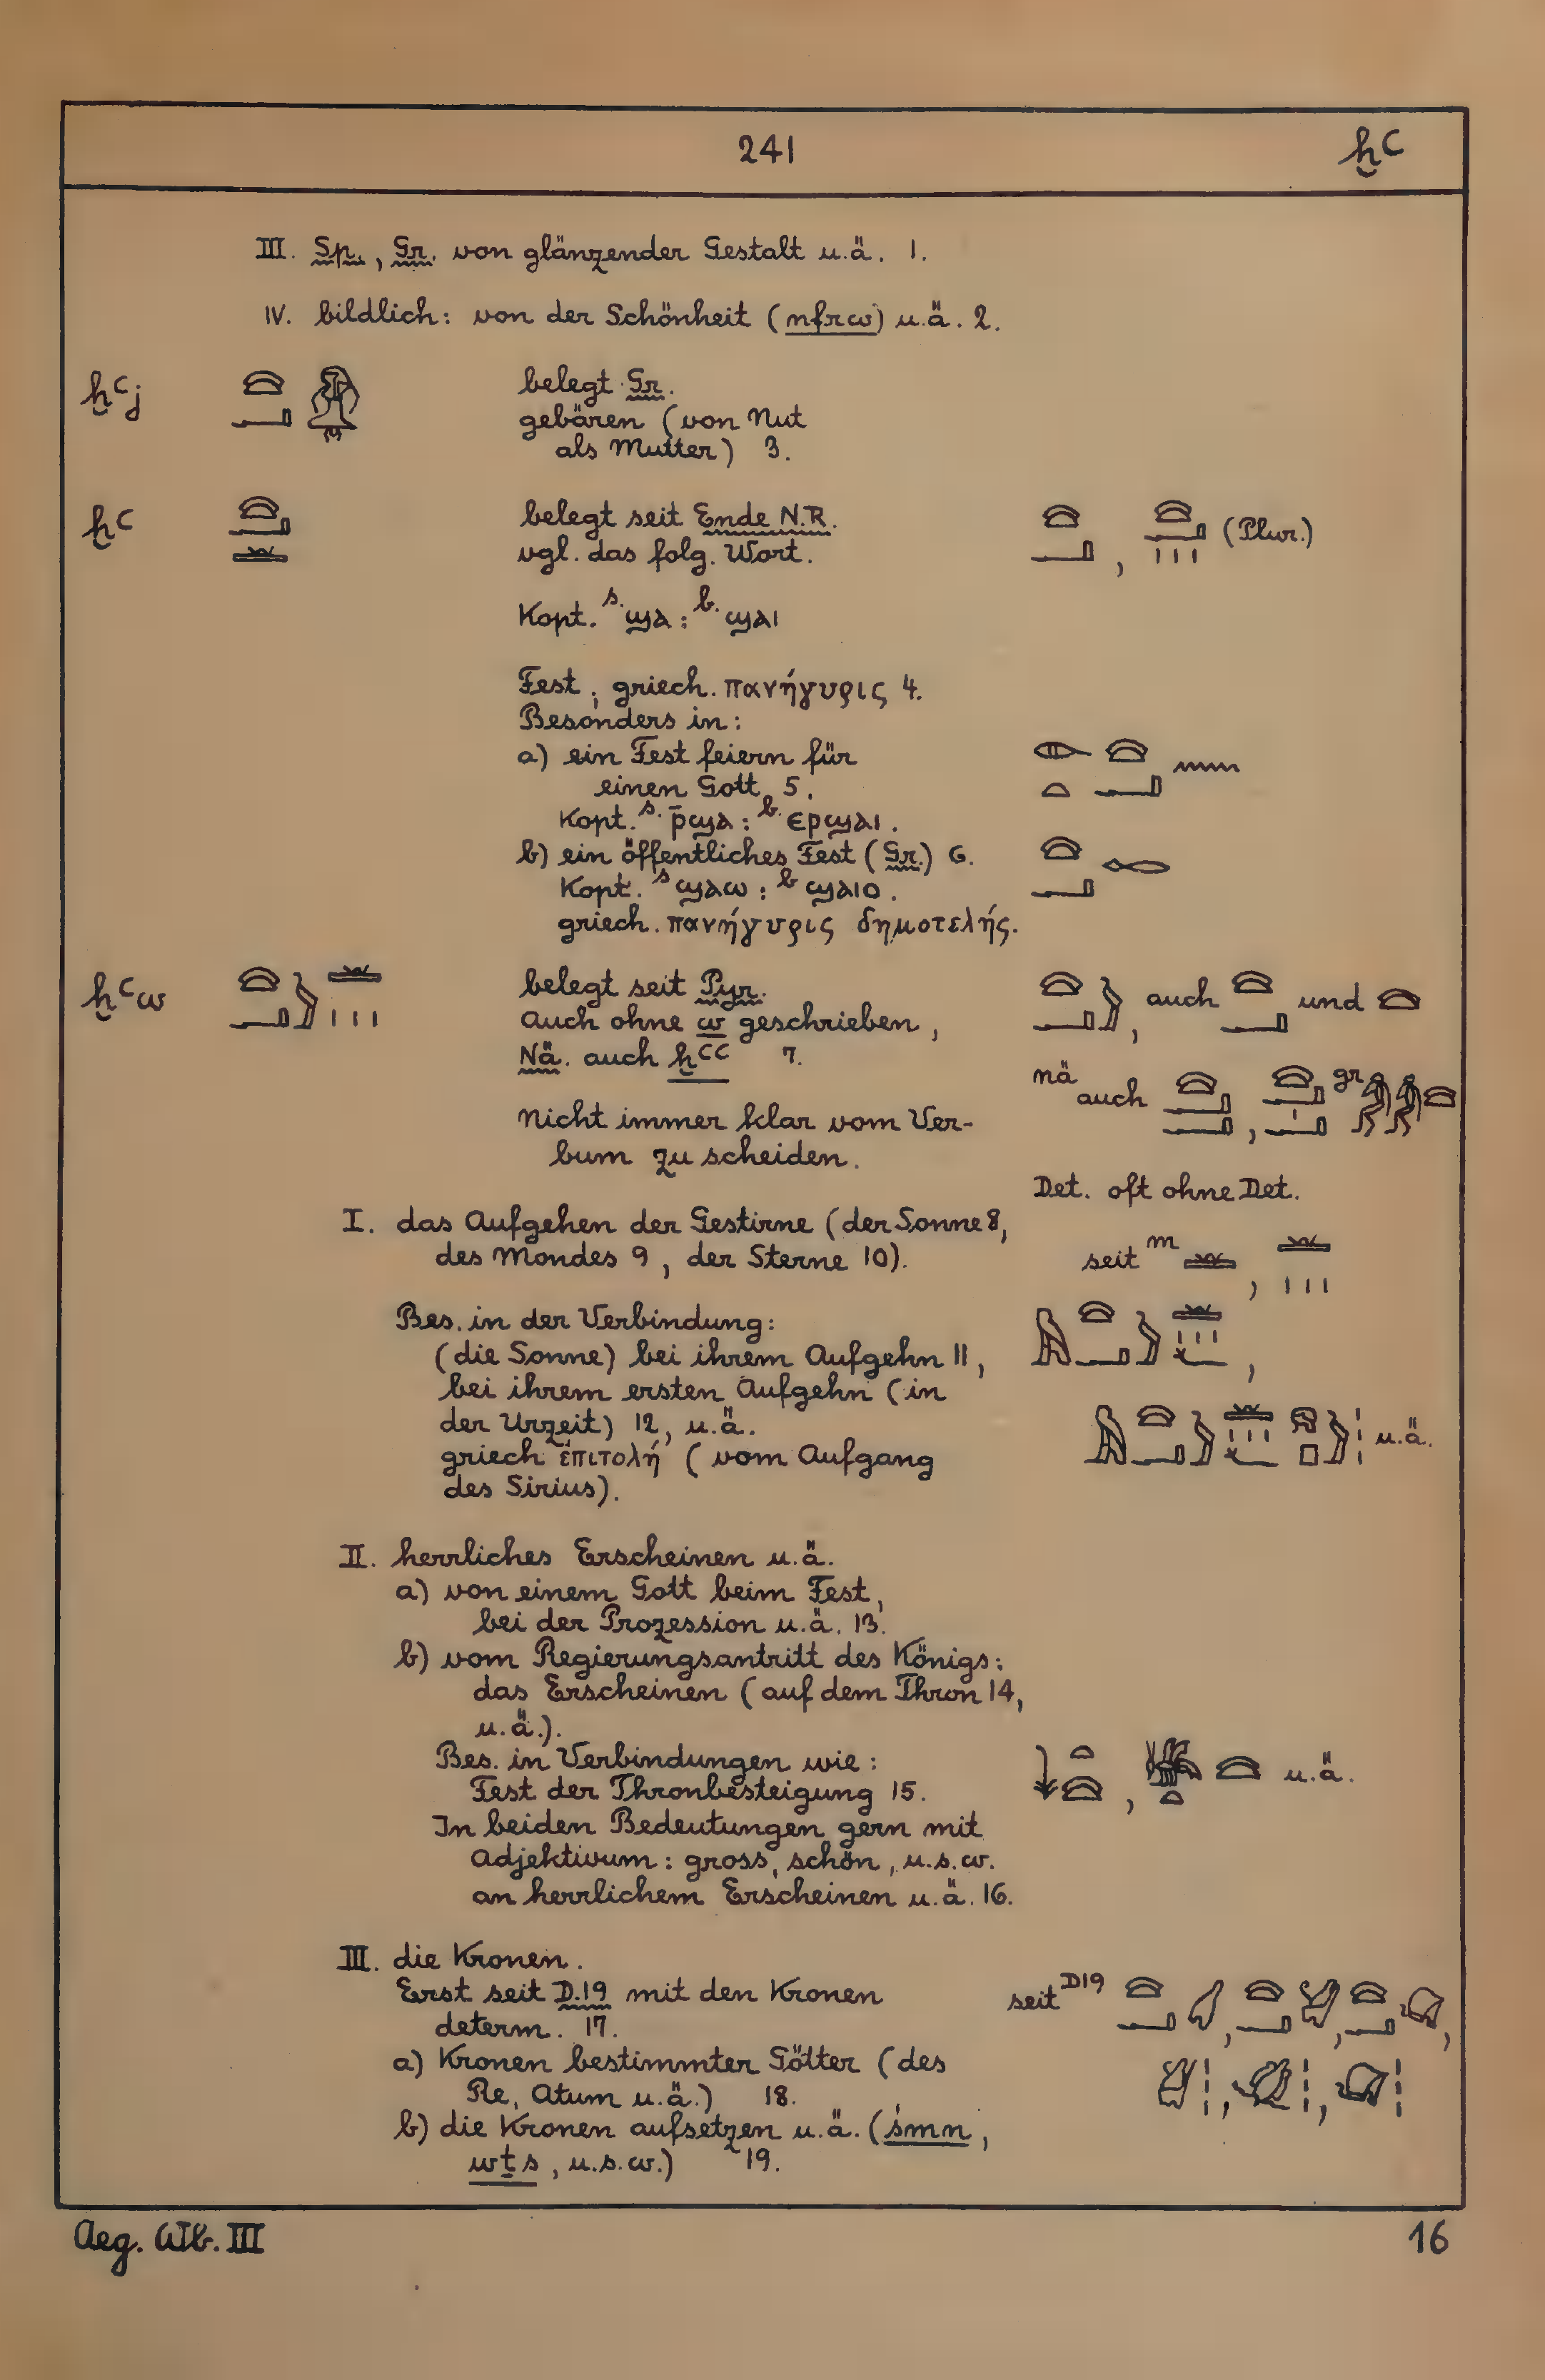 241
ḫꜥ
III. Sp., Gr. von glänzender Gestalt u.ä. 1.
IV. bildlich: von der Schönheit (nfrw) u.ä. 2.
ḫꜥj
belegt Gr.
gebären (von Nut
als Mutter) 3.
ḫꜥ
belegt seit Ende N.R.
(Plur.)
vgl. das folg. Wort.
Kopt. s. ϣⲁ : b. ϣⲁⲓ
Fest, griech. πανήγυρις 4.
Besonders in:
a) ein Fest feiern für
einen Gott 5.
Kopt. s. ⲣ̄ϣⲁ : b. ⲉⲣϣⲁⲓ.
b) ein öffentliches Fest (Gr.) 6.
Kopt. s ϣⲁⲱ : b ϣⲁⲓⲟ.
griech. πανήγυρις δημοτελής.
ḫꜥw
belegt seit Pyr.
, auch und
auch ohne w geschrieben,
Nä. auch ḫꜥꜥ 7.
nä auch , gr
nicht immer klar vom Ver-
bum zu scheiden.
Det. oft ohne Det.
I. das Aufgehen der Gestirne (der Sonne 8,
des Mondes 9, der Sterne 10).
seit m ,
Bes. in der Verbindung:
(die Sonne) bei ihrem Aufgehn 11,
bei ihrem ersten Aufgehn (in
der Urzeit) 12, u.ä.
u.ä.
griech ἐπιτολή (vom Aufgang
des Sirius).
II. herrliches Erscheinen u.ä.
a) von einem Gott beim Fest,
bei der Prozession u.ä. 13.
b) vom Regierungsantritt des Königs:
das Erscheinen (auf dem Thron 14,
u.ä.).
Bes. in Verbindungen wie:
Fest der Thronbesteigung 15.
, u.ä.
In beiden Bedeutungen gern mit
Adjektivum: gross, schön, u.s.w.
an herrlichem Erscheinen u.ä. 16.
III. die Kronen.
Erst seit D.19 mit den Kronen
seit D19
determ. 17.
a) Kronen bestimmter Götter (des
Re, Atum u.ä.) 18.
b) die Kronen aufsetzen u.ä. (śmn,
wṯs, u.s.w.) 19.
Aeg. Wb. III
16